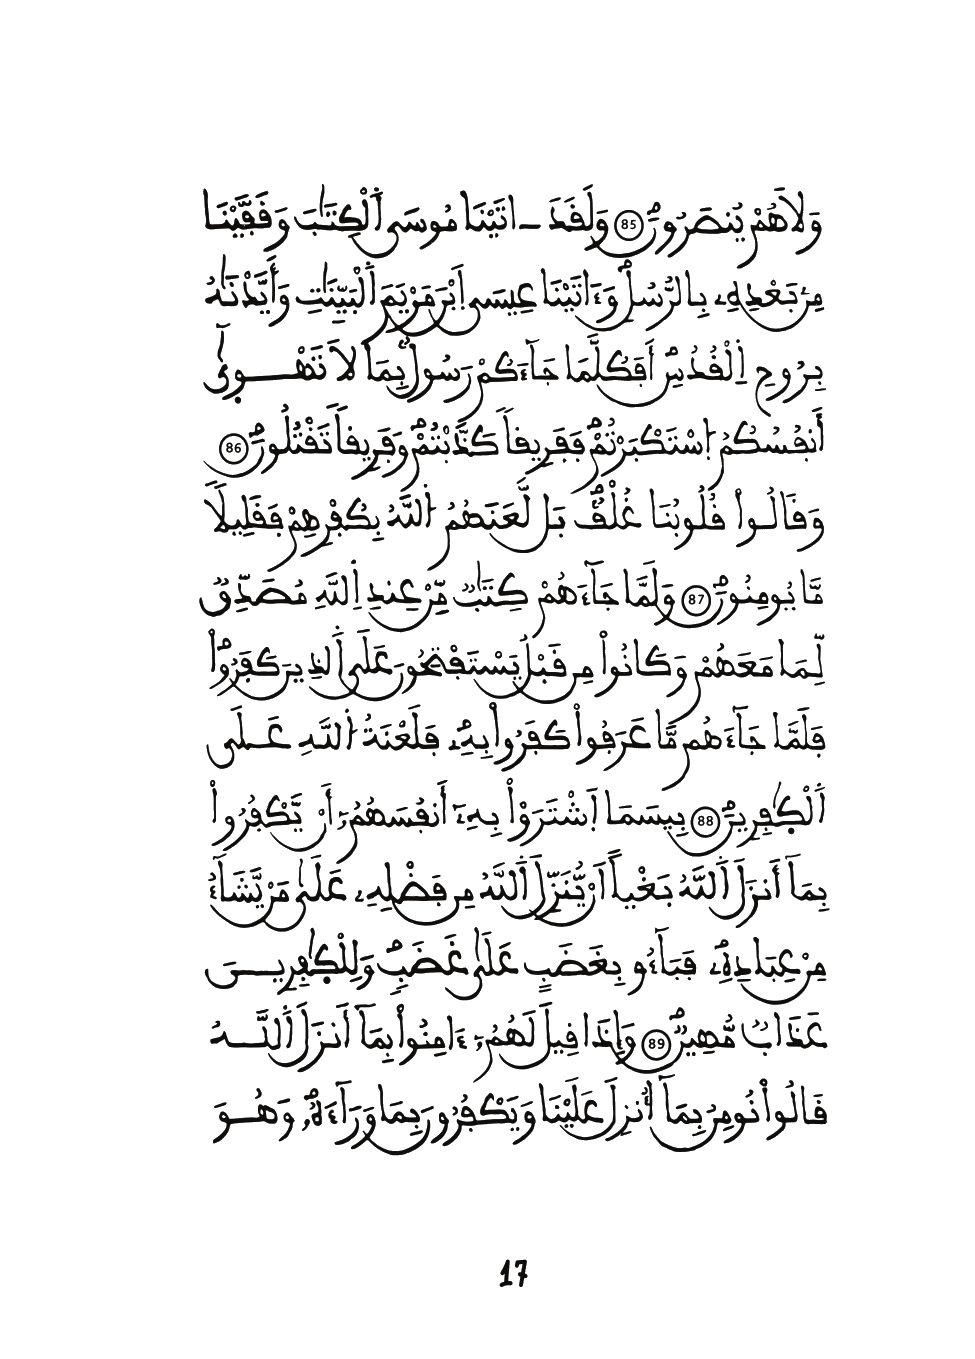 وَلَا هُمْ يُنصَرُونَ 85 وَلَقَدَ ـ اتَيْنَا مُوسَى اَ۬لْكِتَٰبَ وَقَفَّيْنَا
مِنۢ بَعْدِهِۦ بِالرُّسُلِ وَءَاتَيْنَا عِيسَى اَ۪بْنَ مَرْيَمَ اَ۬لْبَيِّنَٰتِ وَأَيَّدْنَٰهُ
بِرُوحِ اِ۬لْقُدُسِ أَفَكُلَّمَا جَآءَكُمْ رَسُولُۢ بِمَا لَا تَهْوِىٰٓ
أَنفُسُكُمُ اُ۪سْتَكْبَرْتُمْ فَفَرِيقاً كَذَّبْتُمْ وَفَرِيقاً تَقْتُلُونَ 86
وَقَالُواْ قُلُوبُنَا غُلْفٌ بَل لَّعَنَهُمُ اُ۬للَّهُ بِكُفْرِهِمْ فَقَلِيلًا
مَّا يُومِنُونَ 87 وَلَمَّا جَآءَهُمْ كِتَٰبٌ مِّنْ عِندِ اِ۬للَّهِ مُصَدِّقٌ
لِّمَا مَعَهُمْ وَكَانُواْ مِن قَبْلُ يَسْتَفْتِحُونَ عَلَى اَ۬لذِينَ كَفَرُواْ
فَلَمَّا جَآءَهُم مَّا عَرَفُواْ كَفَرُواْ بِهِۦ فَلَعْنَةُ اُ۬للَّهِ عَلَى
اَ۬لْكٰفِرِينَ 88 بِيسَمَا اَ۪شْتَرَوْاْ بِهِۦٓ أَنفُسَهُمُۥٓ أَنْ يَّكْفُرُواْ
بِمَآ أَنزَلَ اَ۬للَّهُ بَغْياً اَنْ يُّنَزِّلَ اَ۬للَّهُ مِن فَضْلِهِۦ عَلَىٰ مَنْ يَّشَآءُ
مِنْ عِبَادِهِۦ فَبَآءُو بِغَضَبٍ عَلَىٰ غَضَبٍ وَلِلْكٰفِرِينَ
عَذَابٌ مُّهِينٌ 89 وَإِذَا قِيلَ لَهُمُۥٓ ءَامِنُواْ بِمَآ أَنزَلَ اَ۬للَّهُ
قَالُواْ نُومِنُ بِمَآ أُنزِلَ عَلَيْنَا وَيَكْفُرُونَ بِمَا وَرَآءَهُۥ وَهُوَ
17